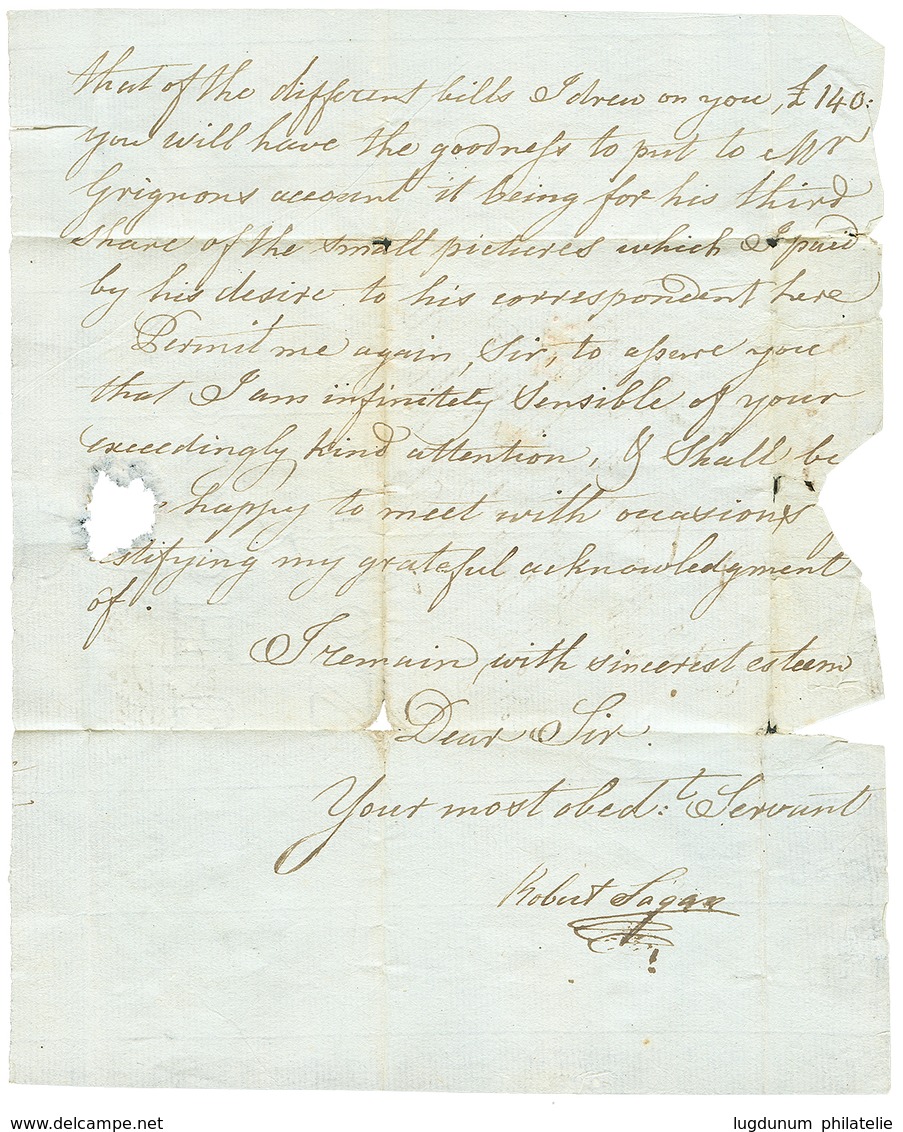 that of the different bills I drew on you, £140:
you will have the goodneſs to put to Mr
Grignons account it being for his third
share of the small pictures which I paid
by his desire to his correspondent here
Permit me again, Sir, to aſsure you
that I am infinitely Sensible of your
exceedingly kind attention, & Shall be
happy to meet with occasions
stifying my grateful acknowledgment
of.
I remain with sincerest esteem
Dear Sir.
Your most obed:t Servant
Robert
www.delcampe.net
lugdunum philatelie